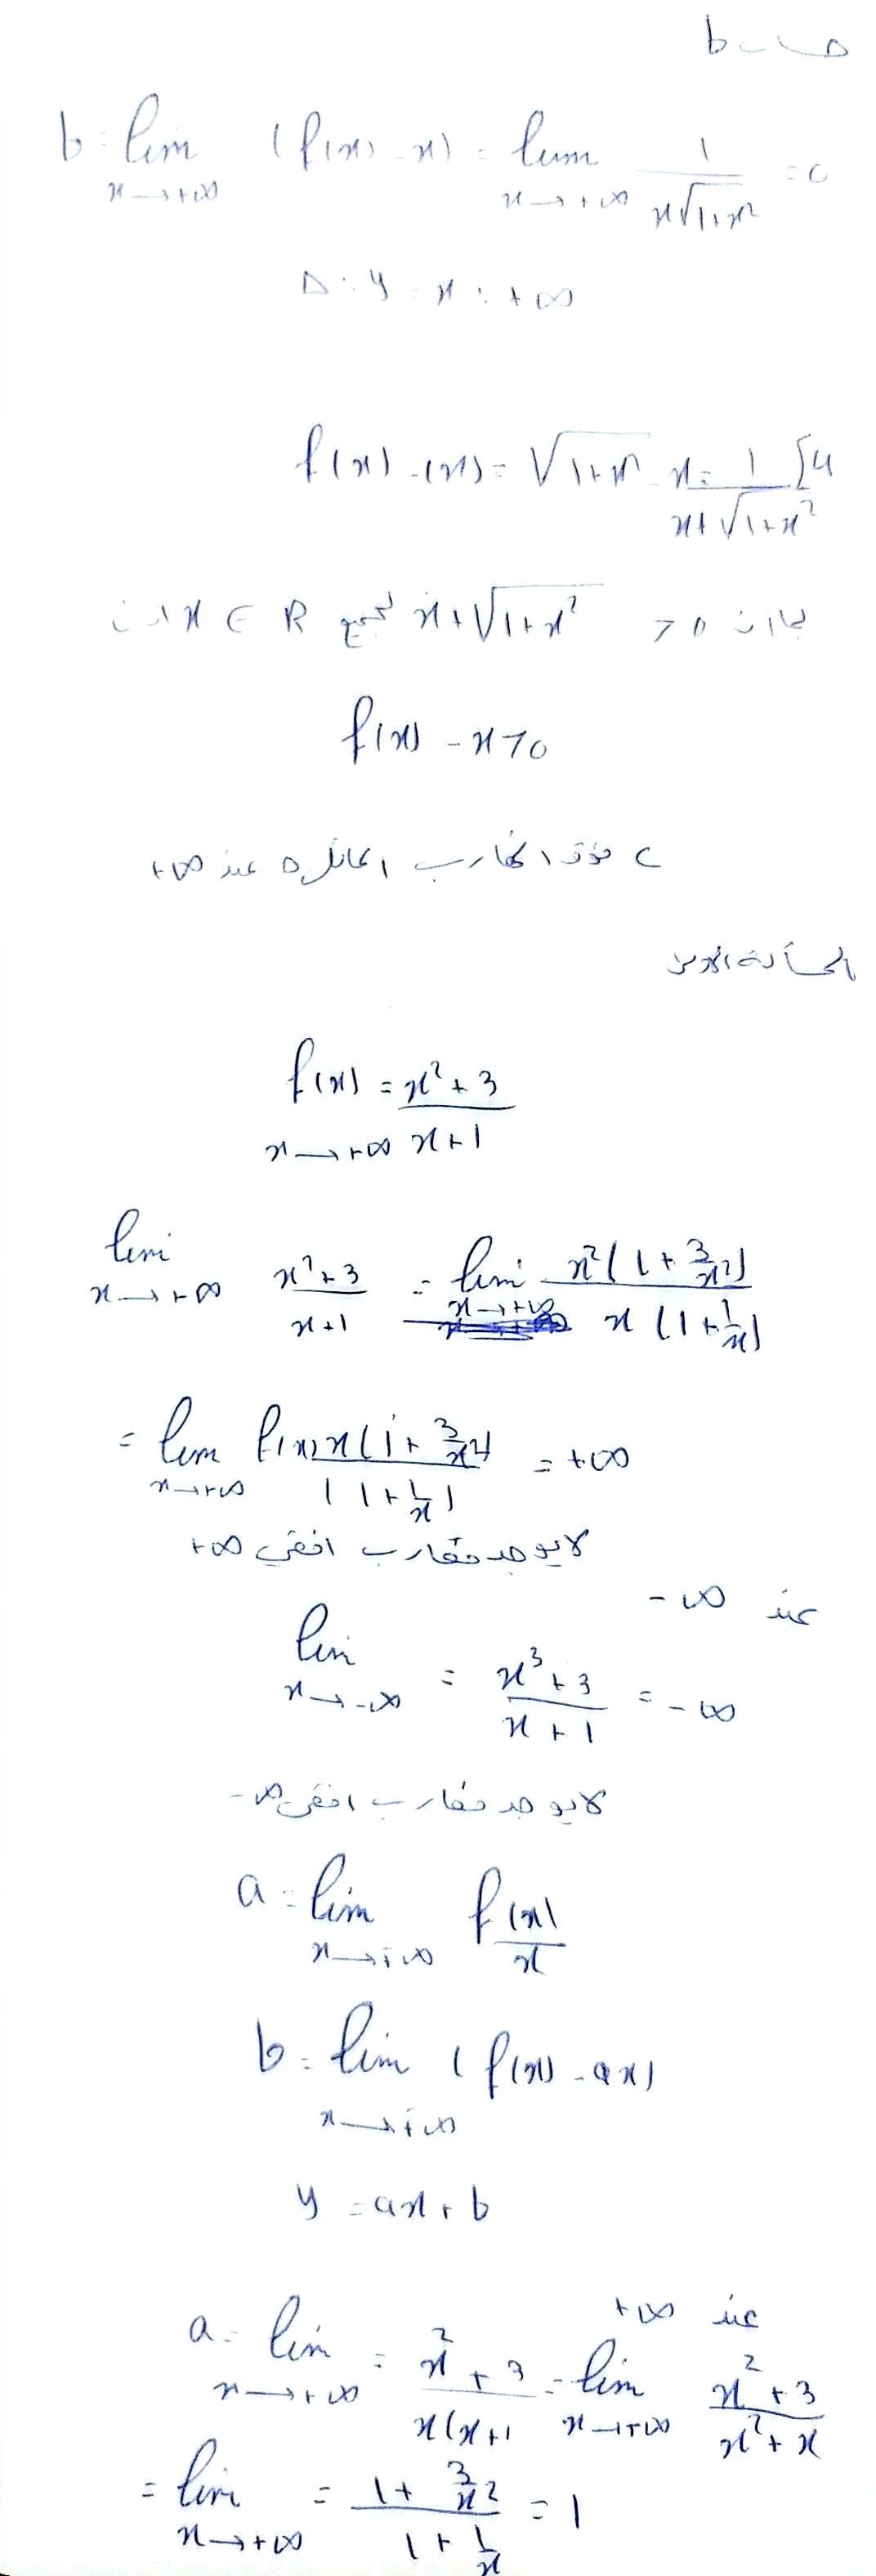 حساب b
b = lim (f(x) - x) = lim 1 / x√1+x² = 0
x→+∞ x→+∞
Δ: y = x : +∞
f(x) - (x) = √1+x² - x = 1 / x+√1+x² [4
بما ان 0 < x+√1+x² لجميع x ∈ R فان
f(x) - x > 0
C فوق المقارب المائل Δ عند +∞
المسألة الاولى
f(x) = x²+3 / x+1
x→+∞
lim x²+3 / x+1 = lim x²(1+3/x²) / x(1+1/x)
x→+∞ x→+∞
= lim f(x) x(1+3/x²) / (1+1/x) = +∞
x→+∞
لا يوجد مقارب افقي +∞
عند -∞
lim = x³+3 / x+1 = -∞
x→-∞
لا يوجد مقارب افقي -∞
a = lim f(x) / x
x→∓∞
b = lim (f(x) - ax)
x→∓∞
y = ax + b
عند +∞
a = lim = x²+3 / x(x+1 = lim x²+3 / x²+x
x→+∞ x→+∞
= lim = 1+3/x² / 1+1/x = 1
x→+∞